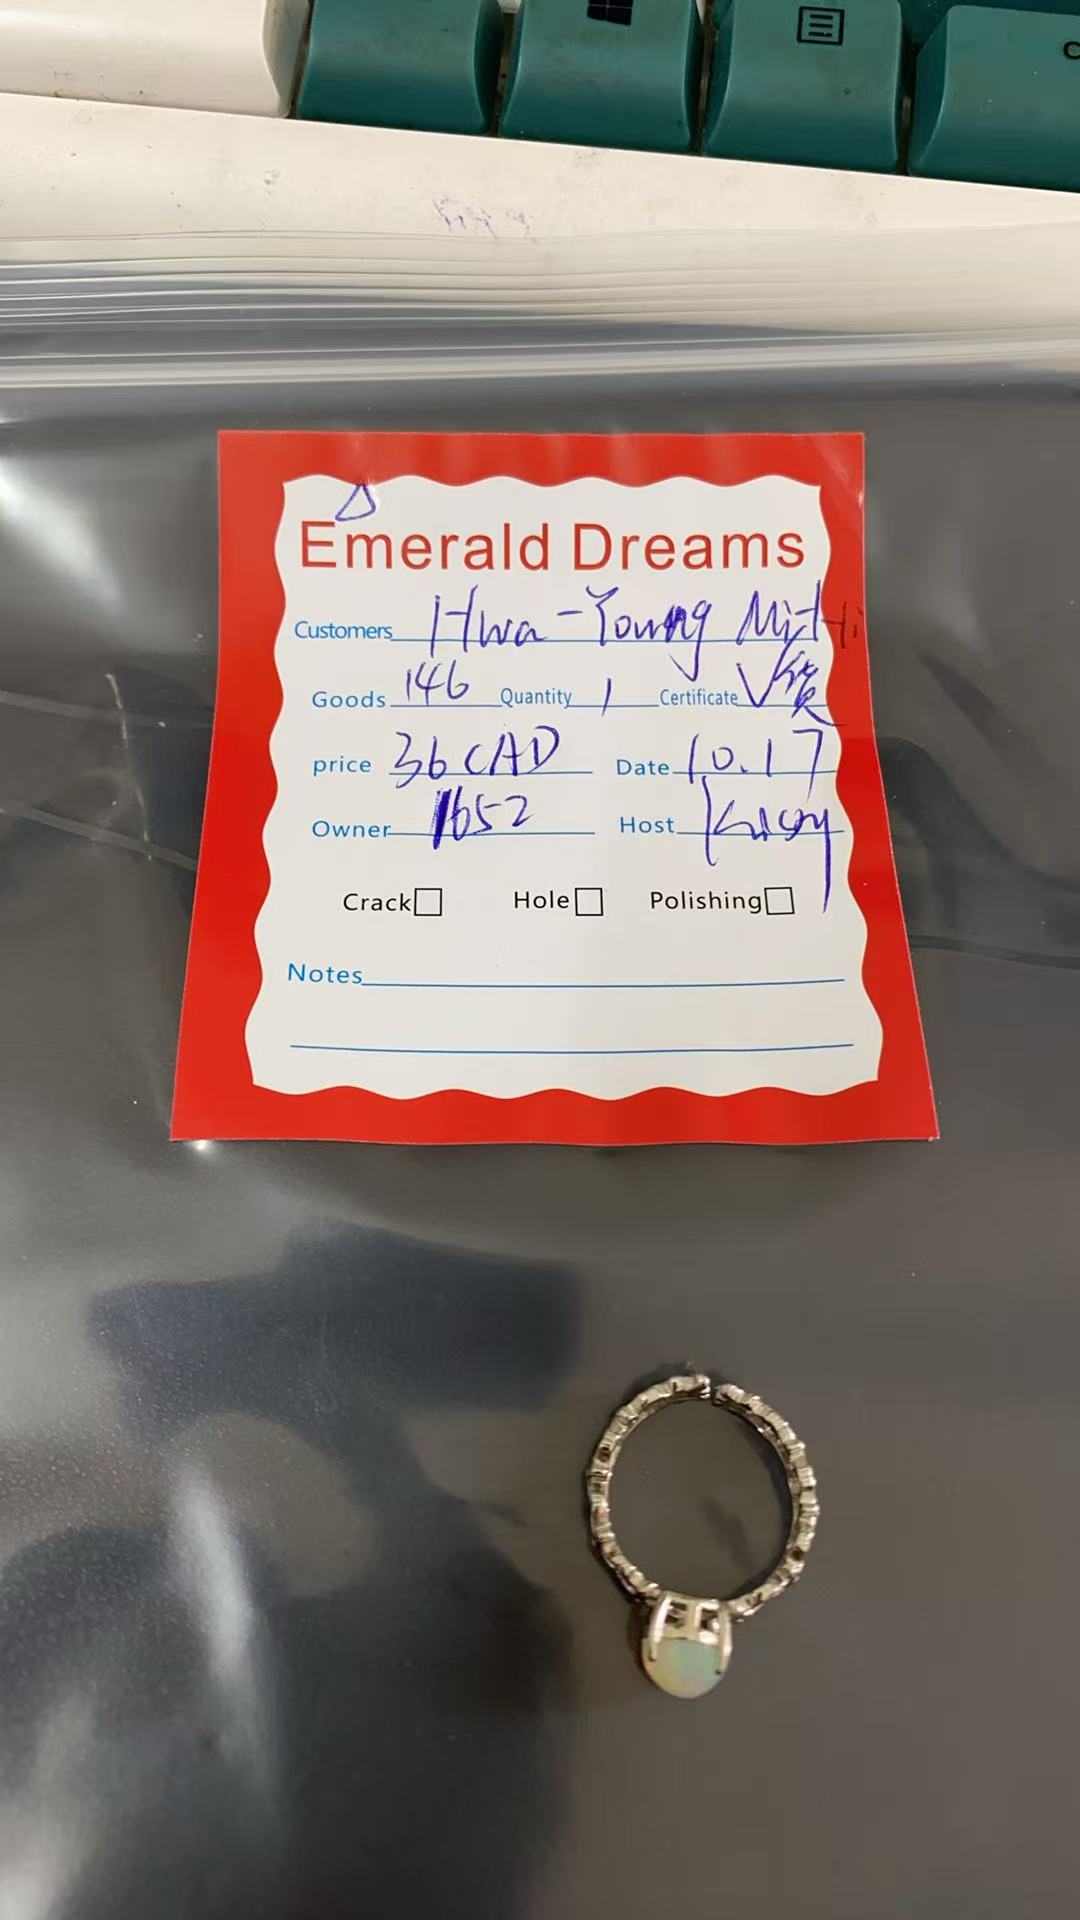 Emerald Dreams
Customers Hwa-Young
Goods 146 Quantity 1 Certificate √
price 36 CAD Date 10.17
Owner 1652 Host
Crack Hole Polishing
Notes